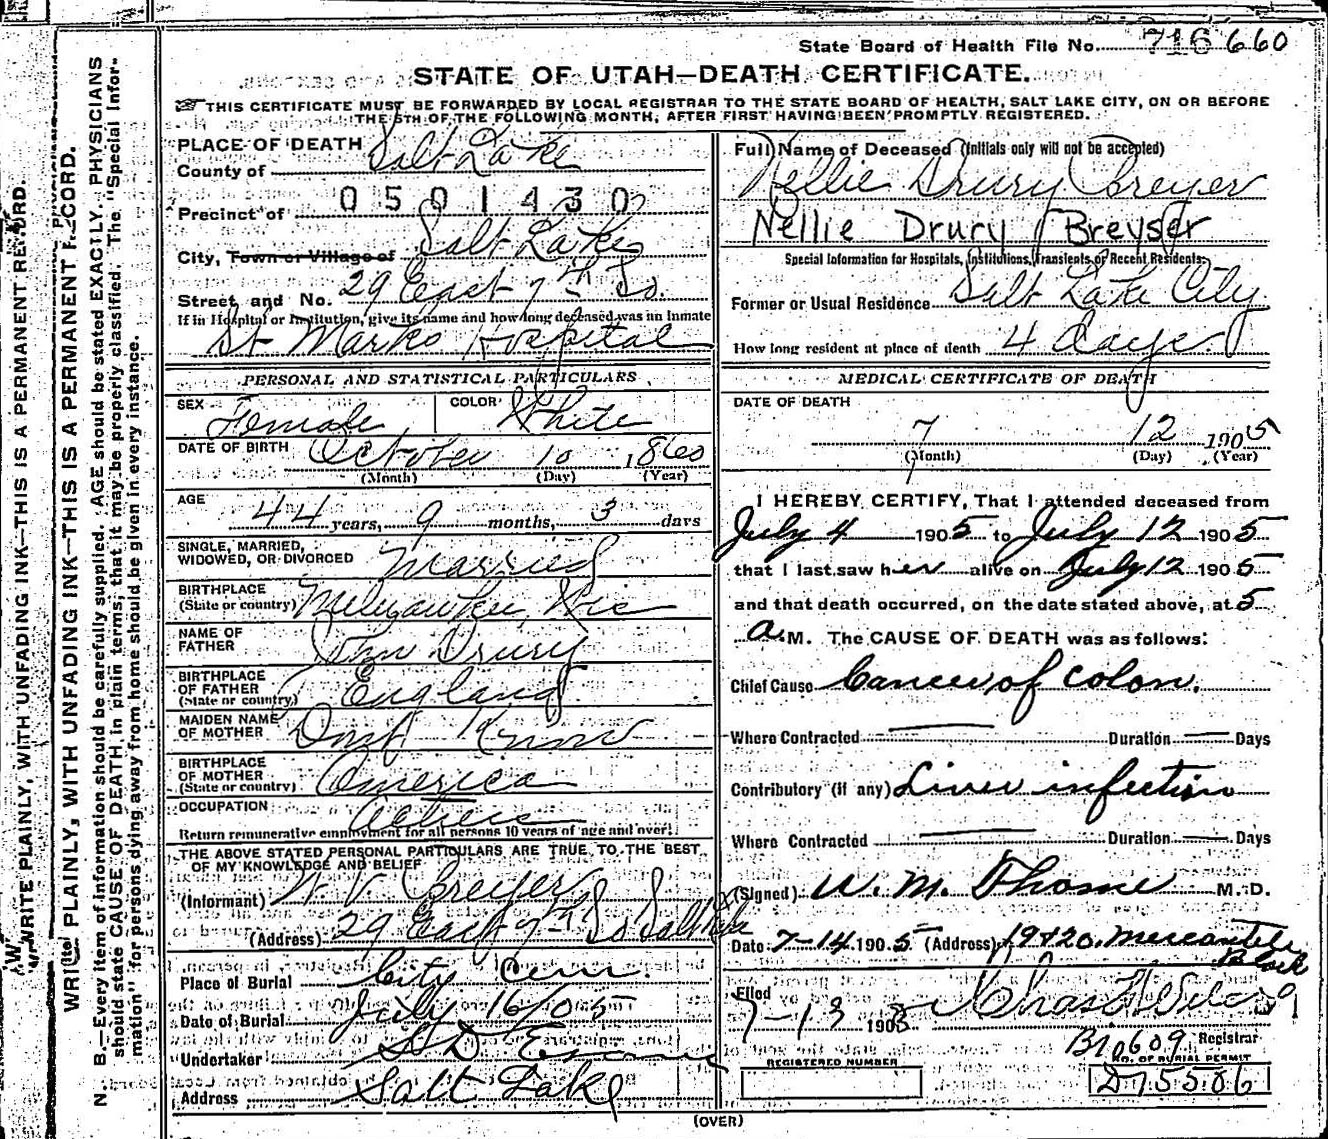 State Board of Health File No. 716 660
STATE OF UTAH—DEATH CERTIFICATE.
THIS CERTIFICATE MUST BE FORWARDED BY LOCAL REGISTRAR TO THE STATE BOARD OF HEALTH, SALT LAKE CITY, ON OR BEFORE
THE 5TH OF THE FOLLOWING MONTH, AFTER FIRST HAVING BEEN PROMPTLY REGISTERED.
PLACE OF DEATH
County of Salt Lake
Precinct of 0501430
City, Town or Village of Salt Lake
Street, and No. 29 East 7th So.
If in Hospital or Institution, give its name and how long deceased was an inmate
St Marks Hospital
PERSONAL AND STATISTICAL PARTICULARS
SEX Female COLOR White
DATE OF BIRTH October 10 1860
(Month) (Day) (Year)
AGE 44 years, 9 months, 3 days
SINGLE, MARRIED,
WIDOWED, OR DIVORCED Married
BIRTHPLACE
(State or country) Milwaukee, Wis
NAME OF
FATHER John Drury
BIRTHPLACE
OF FATHER
(State or country) England
MAIDEN NAME
OF MOTHER Dont Know
BIRTHPLACE
OF MOTHER
(State or country) America
OCCUPATION
Return remunerative employment for all persons 10 years of age and over
THE ABOVE STATED PERSONAL PARTICULARS ARE TRUE TO THE BEST
OF MY KNOWLEDGE AND BELIEF
(Informant) W. V. Breyer
(Address) 29 East 7th So Salt Lake
Place of Burial City Cem.
Date of Burial July 16/05
Undertaker S D
Address Salt Lake
Full Name of Deceased (Initials only will not be accepted)
Nellie Drury Breyer
Nellie Drury Breyser
Special Information for Hospitals, Institutions, Transients or Recent Residents.
Former or Usual Residence Salt Lake City
How long resident at place of death 4 days
MEDICAL CERTIFICATE OF DEATH
DATE OF DEATH
7 12 1905
(Month) (Day) (Year)
I HEREBY CERTIFY, That I attended deceased from
July 4 1905 to July 12 1905
that I last saw her alive on July 12 1905
and that death occurred, on the date stated above, at 5
a. M. The CAUSE OF DEATH was as follows:
Chief Cause Cancer of colon.
Where Contracted — Duration — Days
Contributory (if any) Liver infection
Where Contracted — Duration — Days
(Signed) W. M. Thome M. D.
Date 7-14 1905 (Address) 19+20. Mercantile
Block
Filed
7-13 1905 Chas
Registrar
B10609
REGISTERED NUMBER NO. OF BURIAL PERMIT
D75506
(OVER)
WRITE PLAINLY, WITH UNFADING INK—THIS IS A PERMANENT RECORD.
WRITE PLAINLY, WITH UNFADING INK—THIS IS A PERMANENT RECORD.
N. B.—Every item of information should be carefully supplied. AGE should be stated EXACTLY. PHYSICIANS
should state CAUSE OF DEATH in plain terms, that it may be properly classified. The "Special Infor-
mation" for persons dying away from home should be given in every instance.